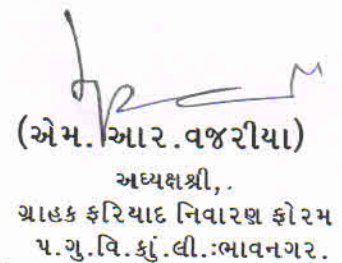 (એમ. આર. વજરીયા)
અધ્યક્ષશ્રી,.
ગ્રાહક ફરિયાદ નિવારણ ફોરમ
પ.ગુ.વિ.કાું.લી.:ભાવનગર.